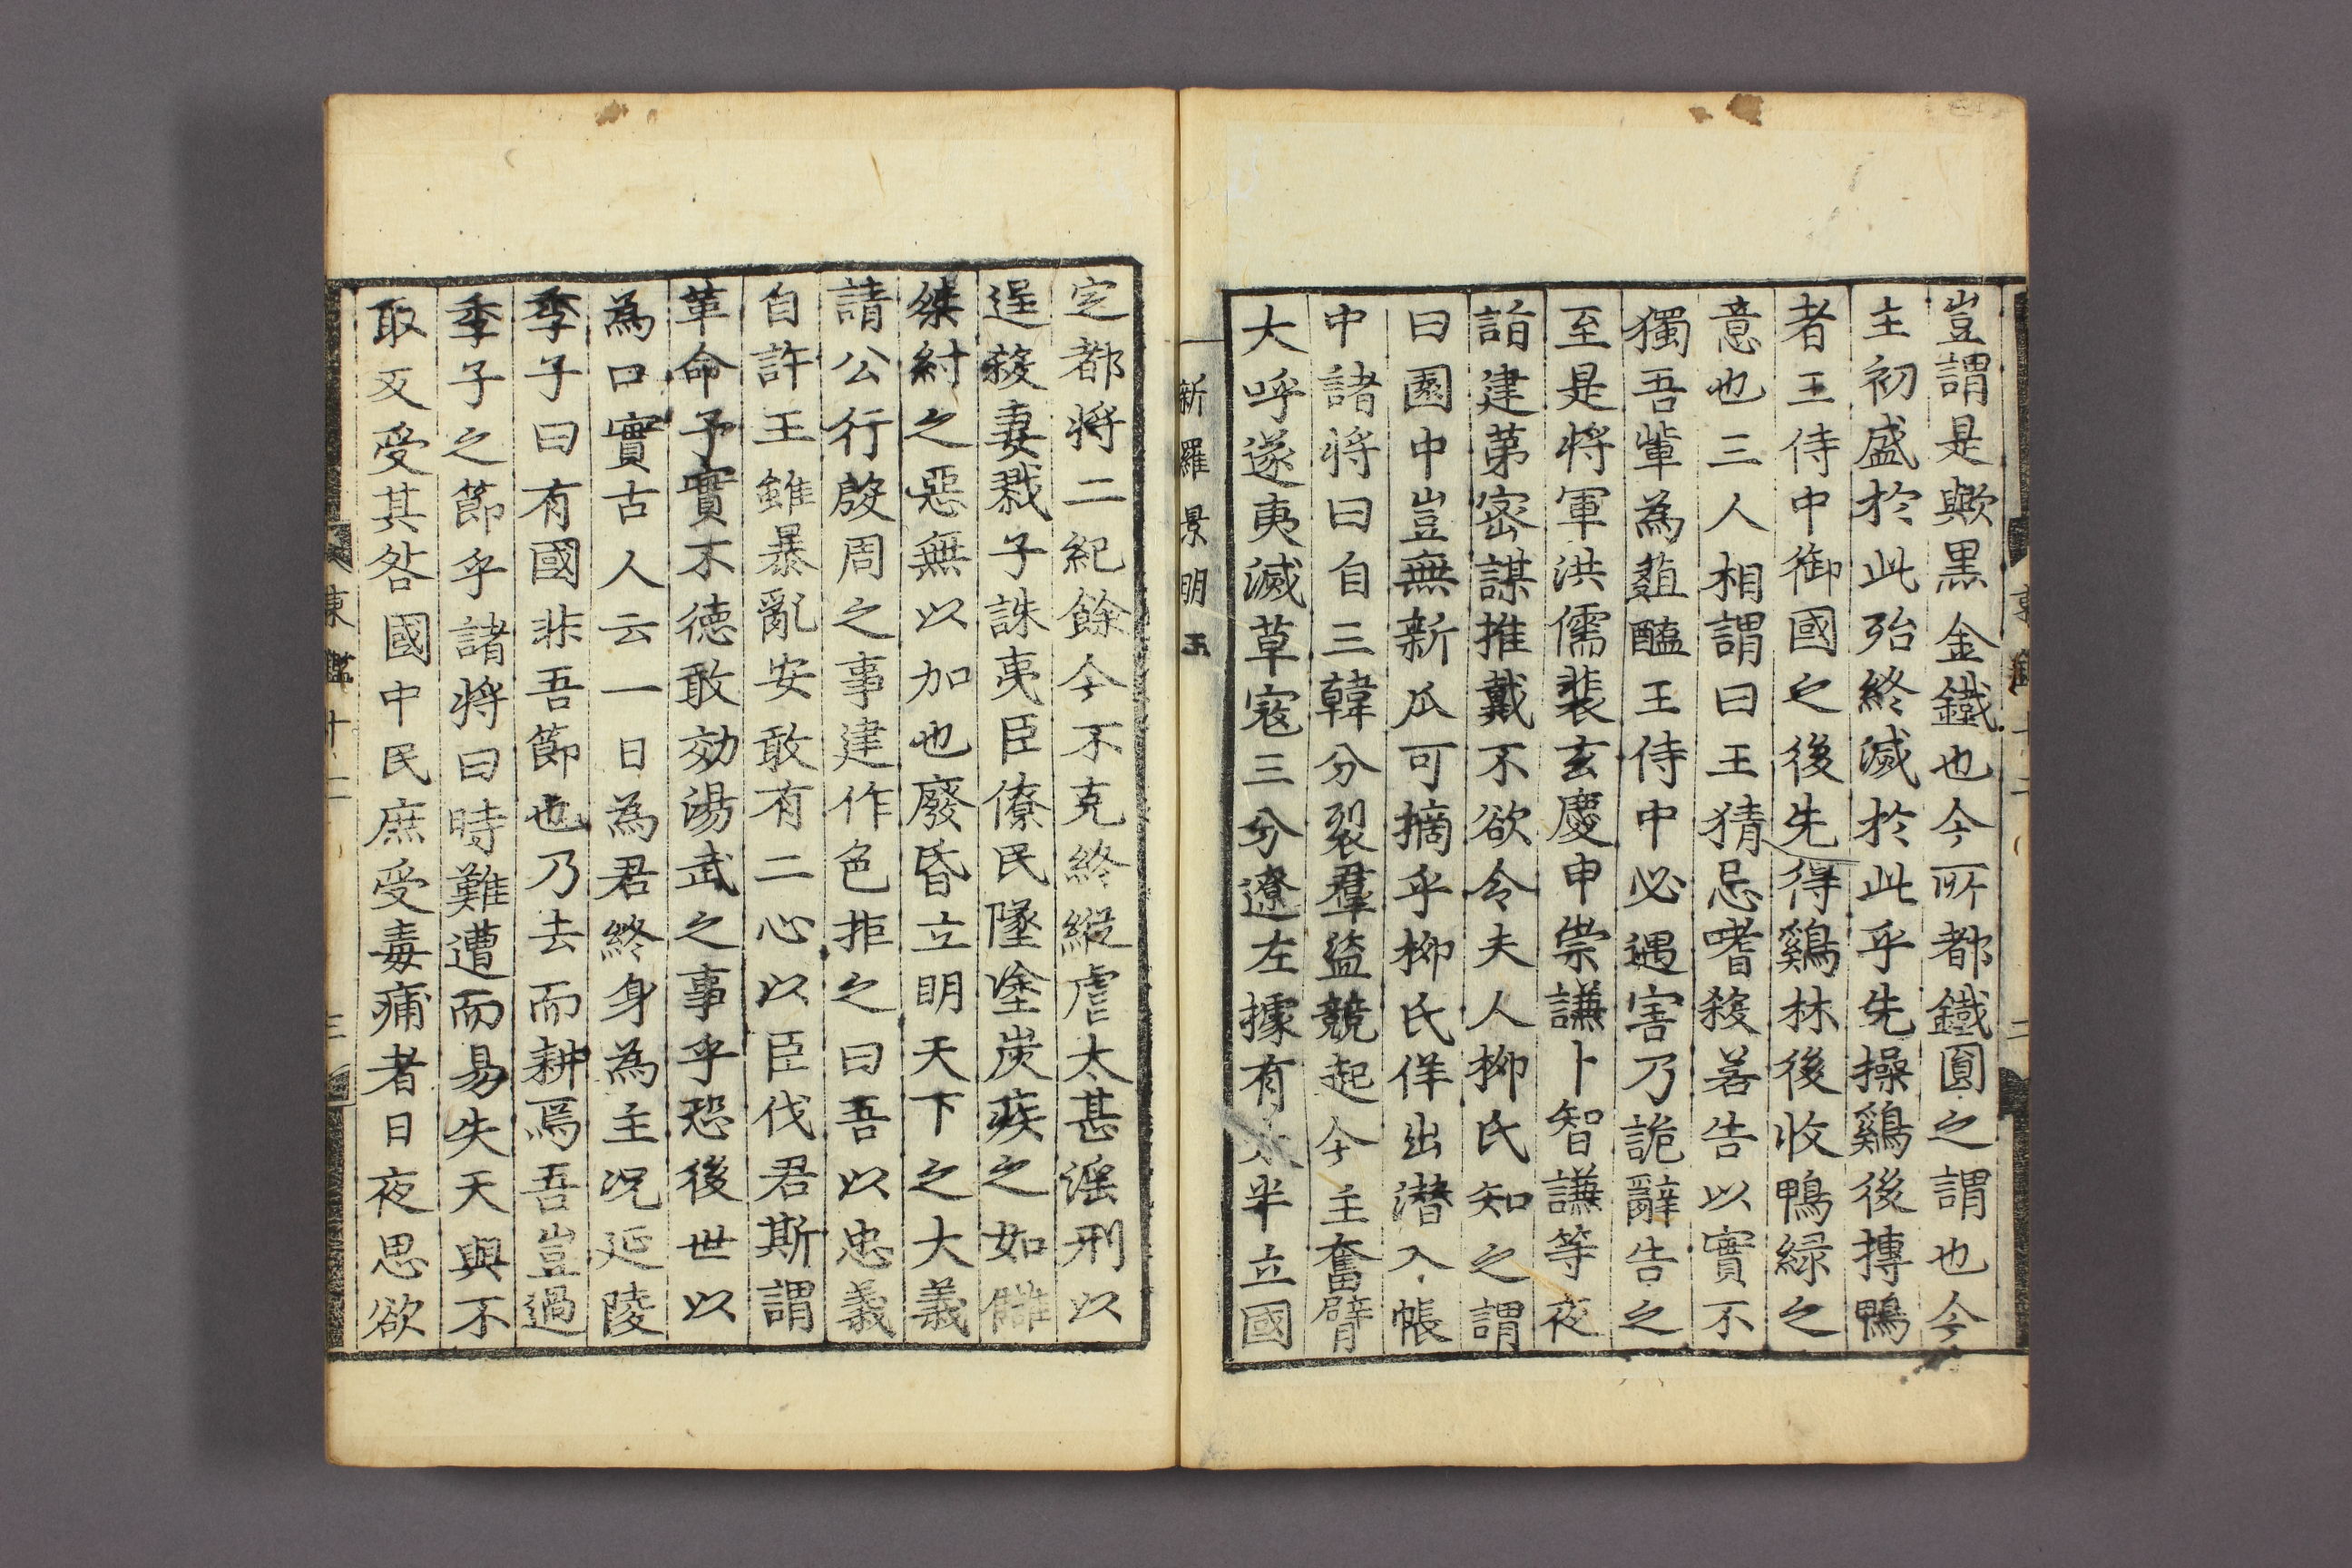 豈謂是歟黒金鐵也今所都鐵圓之謂也今
主初盛於此殆終滅於此乎先操鷄後摶鴨
者王侍中御國之後先得鷄林後收鴨緑之
意也三人相謂曰王猜忌嗜殺若告以實不
獨吾輩為葅醢王侍中必遇害乃詭辭告之
至是將軍洪儒裴玄慶申崇謙卜智謙等夜
詣建第密謀推戴不欲令夫人柳氏知之謂
曰園中豈無新瓜可摘乎柳氏佯出潜入帳
中諸將曰自三韓分裂羣盗競起今主奮臂
大呼遂夷滅草寇三分遼左據有大半立國
新羅景明王
定都將二紀餘今不克終縱虐太甚滛刑以
逞殺妻戮子誅夷臣僚民墜塗炭疾之如讎
桀紂之惡無以加也廢昏立明天下之大義
請公行殷周之事建作色拒之曰吾以忠義
自許王雖暴亂安敢有二心以臣伐君斯謂
革命予實不徳敢効湯武之事乎恐後世以
為口實古人云一日為君終身為主况延陵
季子曰有國非吾節也乃去而耕焉吾豈過
季子之節乎諸將曰時難遭而易失天與不
取反受其咎國中民庶受毒痡者日夜思欲
東鑑十二
三